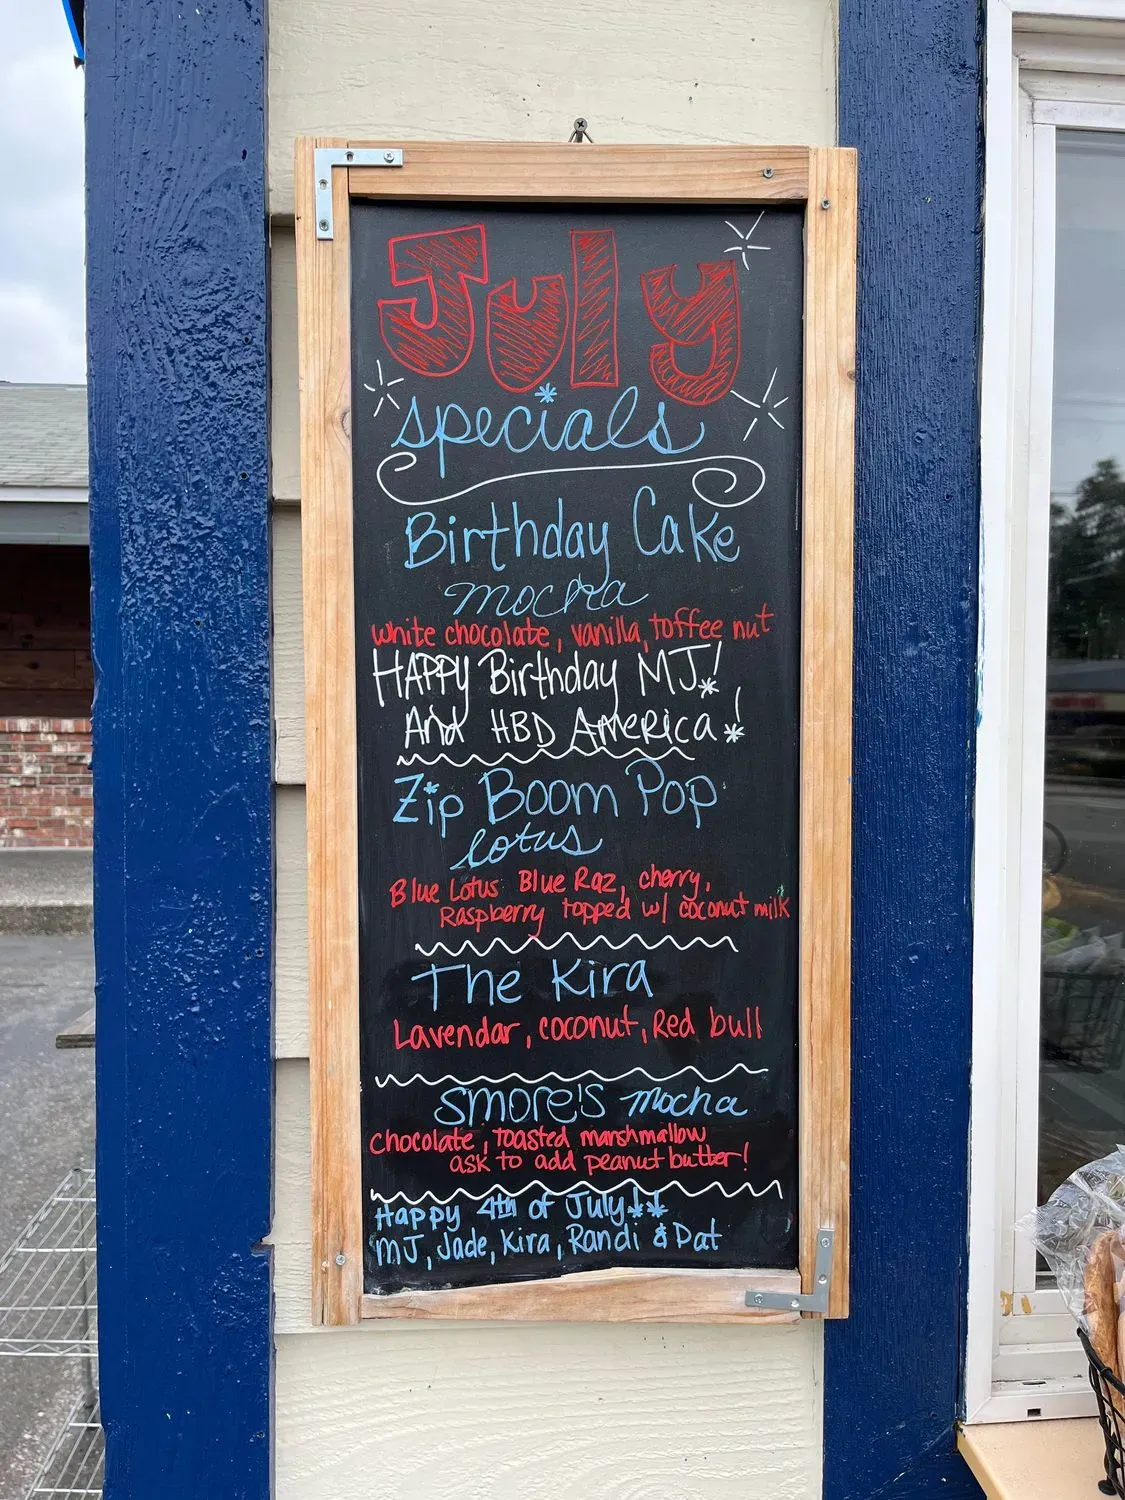 July
specials
Birthday Cake
mocha
white chocolate, vanilla, toffee nut
HAPPY Birthday MJ!
And HBD AmeRica!
Zip Boom Pop
lotus
Blue Lotus Blue Raz, cherry,
Raspberry topped w/ coconut milk
The Kira
Lavendar, coconut, Red bull
SMORE'S mocha
Chocolate, toasted marshmallow
ask to add peanut butter!
Happy 4th of July!!
MJ, Jade, Kira, Randi & Dat